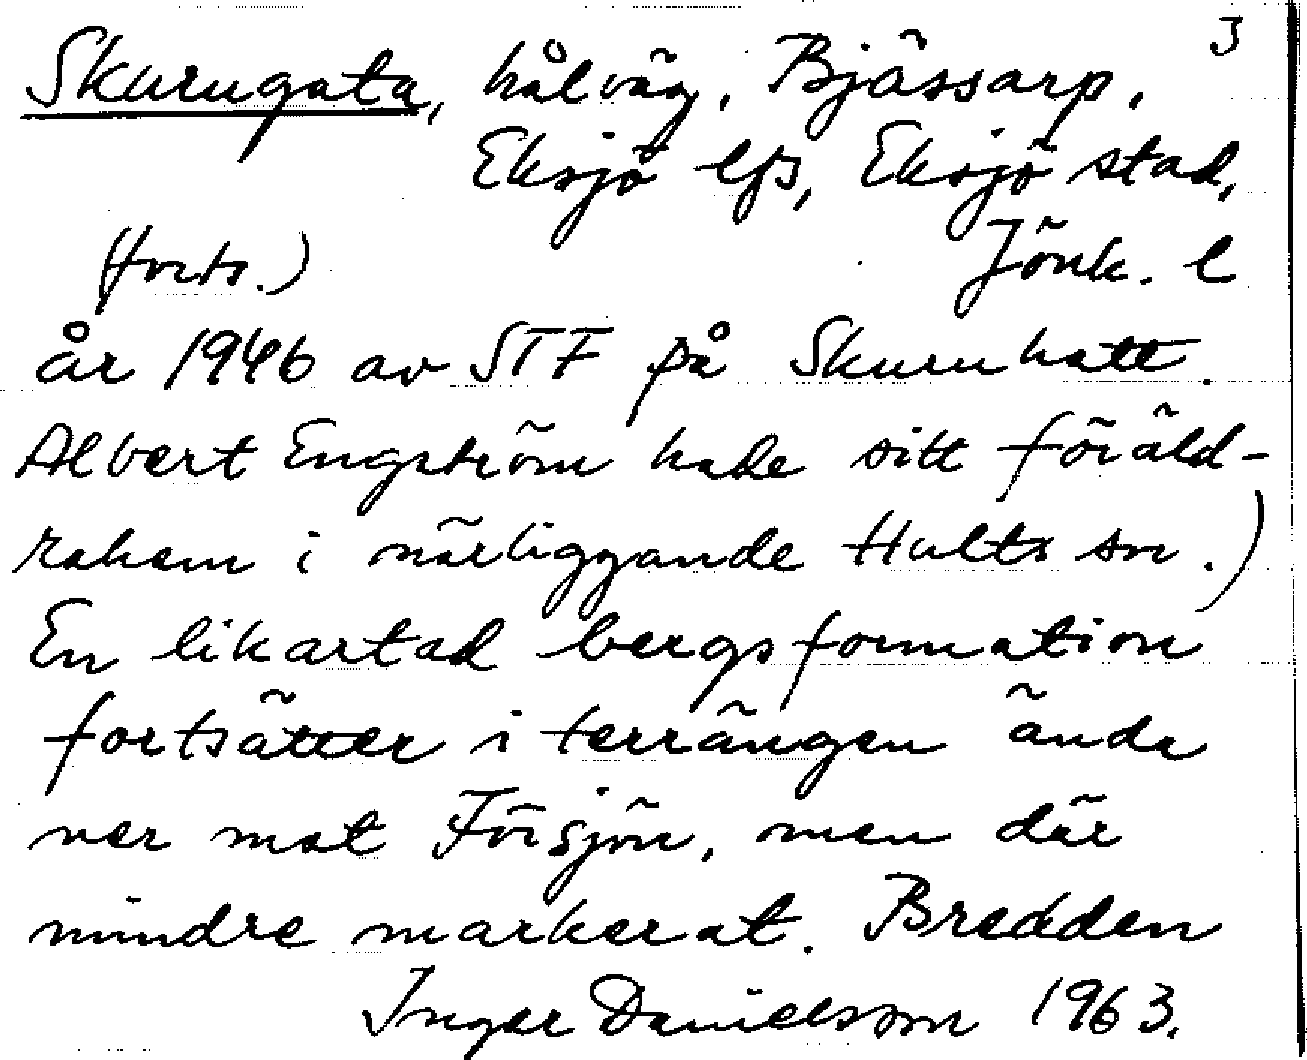 3
Skurugata, hålväg, Bjässarp,
Eksjö lfs, Eksjö stad,
(forts.) Jönk. l
år 1946 av STF på Skuruhatt.
Albert Engström hade sitt föräld-
rahem i närliggande Hults sn.)
En likartad bergsformation
fortsätter i terrängen ända
ner mot Försjön, men där
mindre markerat. Bredden
Inger Danielsson 1963.